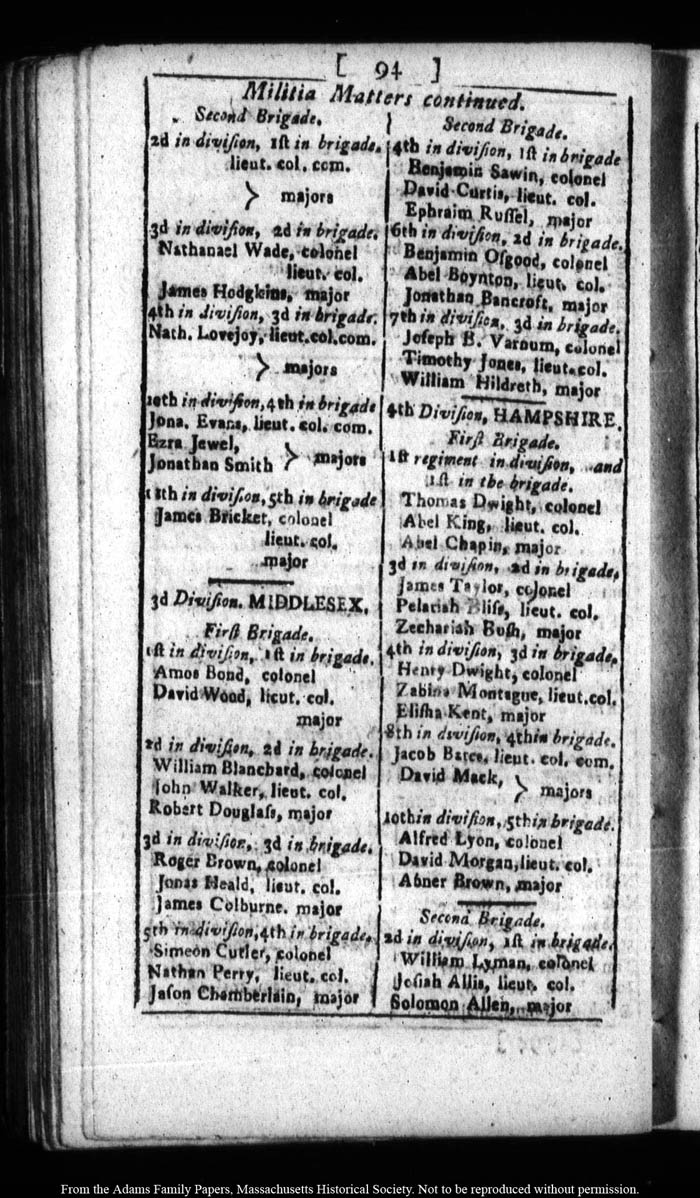 [ 94 ]
Militia Matters continued.
Second Brigade.
2d in division, 1ſt in brigade.
lieut. col. com.
} majors
3d in diviſion, 2d in brigade.
Nathanael Wade, colonel
lieut. col.
James Hodgkins, major
4th in diviſion, 3d in brigade.
Nath. Lovejoy, lieut.col.com.
} majors
10th in diviſion, 4th in brigade
Jona. Evans, lieut. col. com.
Ezra Jewel,
Jonathan Smith } majors
in diviſion, 5th in brigade
James Bricket, colonel
lieut. col.
major
3d Diviſion. MIDDLESEX.
Firſt Brigade.
1ſt in diviſion, 1ſt in brigade.
Amos Bond, colonel
David Wood, lieut. col.
major
2d in diviſion, 2d in brigade.
William Blanchard, colonel
John Walker, lieut. col.
Robert Douglaſs, major
3d in diviſion, 3d in brigade.
Roger Brown, colonel
Jonas Heald, lieut. col.
James Colburne. major
5th in diviſion, 4th in brigade.
Simeon Cutler, colonel
Nathan Perry, lieut. col.
Jaſon Chamberlain, major
Second Brigade.
4th in diviſion, 1ſt in brigade
Benjamin Sawin, colonel
David Curtis, lieut. col.
Ephraim Ruſſel, major
6th in diviſion, 2d in brigade.
Benjamin Oſgood, colonel
Abel Boynton, lieut. col.
Jonathan Bancroft, major
7th in diviſion, 3d in brigade.
Joſeph B. Varnum, colonel
Timothy Jones, lieut. col.
William Hildreth, major
4th Diviſion, HAMPSHIRE.
Firſt Brigade.
1ſt regiment in diviſion, and
1ſt in the brigade.
Thomas Dwight, colonel
Abel King, lieut. col.
Abel Chapin, major
3d in diviſion, 2d in brigade.
James Taylor, colonel
Pelatiah Bliſs, lieut. col.
Zechariah Buſh, major
4th in diviſion, 3d in brigade.
Henry Dwight, colonel
Zabina Montague, lieut.col.
Eliſha Kent, major
8th in diviſion, 4th in brigade.
Jacob Bates, lieut. col. com.
David Mack, } majors
10th in diviſion, 5th in brigade.
Alfred Lyon, colonel
David Morgan, lieut. col.
Abner Brown, major
Second Brigade.
2d in diviſion, 1ſt in brigade.
William Lyman, colonel
Joſiah Allis, lieut. col.
Solomon Allen, major
From the Adams Family Papers, Massachusetts Historical Society. Not to be reproduced without permission.